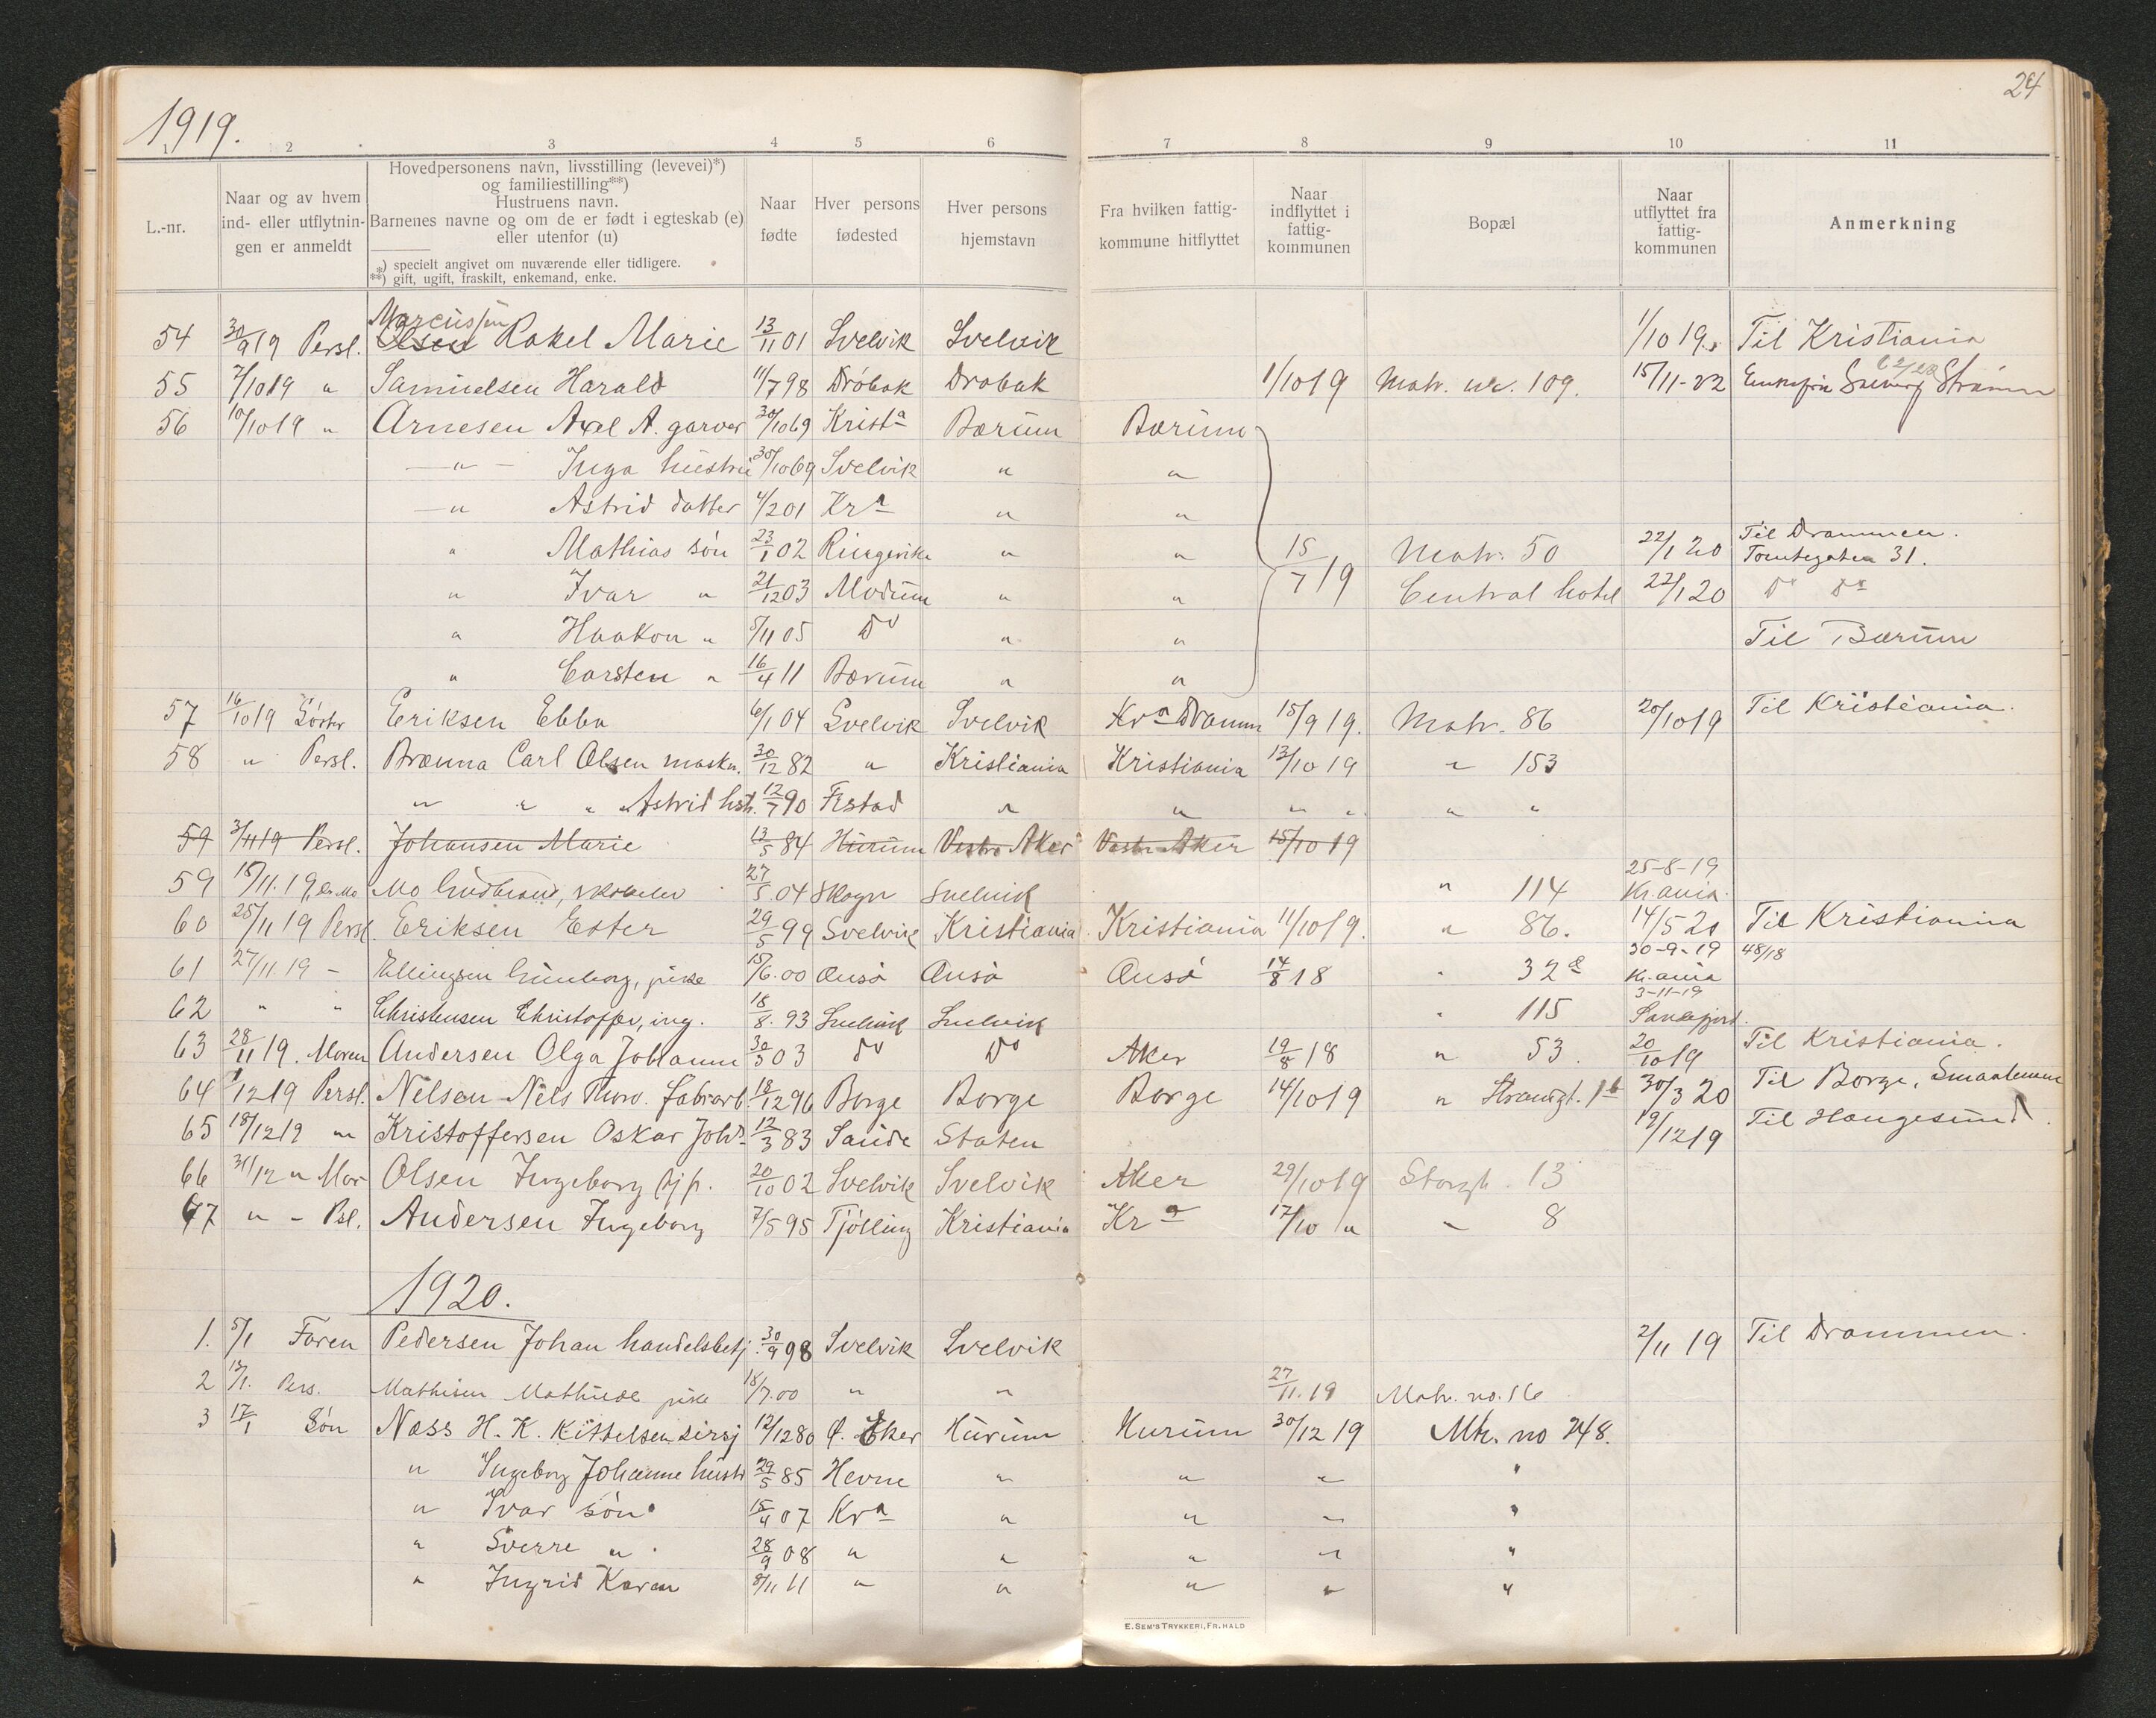 1919.
24
1 2 3 4 5 6 7 8 9 10 11
L.-nr.
Naar og av hvem ind- eller utflytningen er anmeldt
Hovedpersonens navn, livsstilling (levevei)*)
og familiestilling**)
Hustruens navn.
Barnenes navne og om de er født i egteskab (e)
eller utenfor (u)
*) specielt angivet om nuværende eller tidligere.
**) gift, ugift, fraskilt, enkemand, enke.
Naar fødte
Hver persons fødested
Hver persons hjemstavn
Fra hvilken fattigkommune hitflyttet
Naar indflyttet i fattigkommunen
Bopæl
Naar utflyttet fra fattigkommunen
Anmerkning
54 30/9 19 Persl. Olsen Marcussen Rakel Marie 13/11 01 Svelvik Svelvik 1/10 19. Til Kristiania
55 7/10 19 " Samuelsen Harald 11/7 98 Dröbak Drobak 1/10 19 Matr. nr. 109. 15/11-22 Strömm
56 10/10 19 " Arnesen Axel A. garver 30/10 69 Krista Bærum Bærum
— " — Inga hustru 30/10 69 Svelvik " "
— " Astrid datter 4/2 01 Kra " "
" Mathias sön 23/1 02 Ringerike " " 15/7 19 Matr. 50 22/1 20 Til Drammen. Tomtegaten 31.
" Ivar " 21/12 03 Modum " " Central hotel 22/1 20 Do Do
" Haakon " 5/11 05 Do " " Til Bærum
" Carsten " 16/4 11 Bærum " "
57 16/10 19 Söster Eriksen Ebba 6/1 04 Svelvik Svelvik Kra Dramm 15/9 19. Matr. 86 20/10 19 Til Kristiania.
58 " Persl. Brænna Carl Olsen maskn. 30/12 82 " Kristiania Kristiania 13/10 19 " 153
" " " Astrid hstr. 12/7 90 " " " " " "
59 3/11 19 Persl. Johansen Marie 13/5 84 Hurum Vestre Aker Vestr Aker 15/10 19
59 18/11. 19, Mo 27/5. 04 Skogn Svelvik " 114 25-8-19 Kr.ania.
60 25/11 19 Persl. Eriksen Ester 29/5 99 Svelvik Kristiania Kristiania 11/10 19. " 86. 14/5 20 Til Kristiania
61 27/11. 19 - Ellingsen Gunborg, pike 15/6. 00 Onsö Onsö Onsö 14/8 18 " 32a 30-9-19 Kr.ania 48/18
62 " " Christensen Christoffer, ing. 18/8. 93 Svelvik Svelvik " 115 3-11-19 Sandefjord.
63 28/11 19. Moren Andersen Olga Johanne 30/5 03 do Do Aker 19/8 18 " 53. 20/10 19 Til Kristiania.
64 1/12 19 Persl. Nilsen Nils Thorv. fabrarb. 18/12 96 Borge Borge Borge 14/10 19 " Strandgt. 1b 30/3 20 Til Borge, Smaalenene
65 18/12 19 " Kristoffersen Oskar Johs 12/3 83 Sande Staten 19/12 19 Til Haugesund.
66 31/12 " Mor Olsen Ingeborg tjp. 20/10 02 Svelvik Svelvik Aker 29/10 19 Storgt. 13
67 " - Psl. Andersen Ingeborg 7/5 95 Tjölling Kristiania Kra 17/10 " " 8
1920.
1. 5/1 Faren Pedersen Johan handelsbetj. 30/9 98 Svelvik Svelvik 2/11 19 Til Drammen.
2 12/1. Pers. Mathisen Mathilde pike 18/7. 00 " " 27/11. 19 Matr. no. 16
3 17/1 Sön Næss H. K. Kittelsen 12/12 80 Ø. Eker Hurum Hurum 30/12 19 Mtr. no 248.
" Ingeborg Johanne hustr 29/5 85 Hevne " " " "
" Ivar sön 15/4 07 Kra " " " "
" Sverre " 28/9 08 " " " " "
" Ingrid Karen 8/11 11 " " " " "
E. SEM'S TRYKKERI, FR.HALD